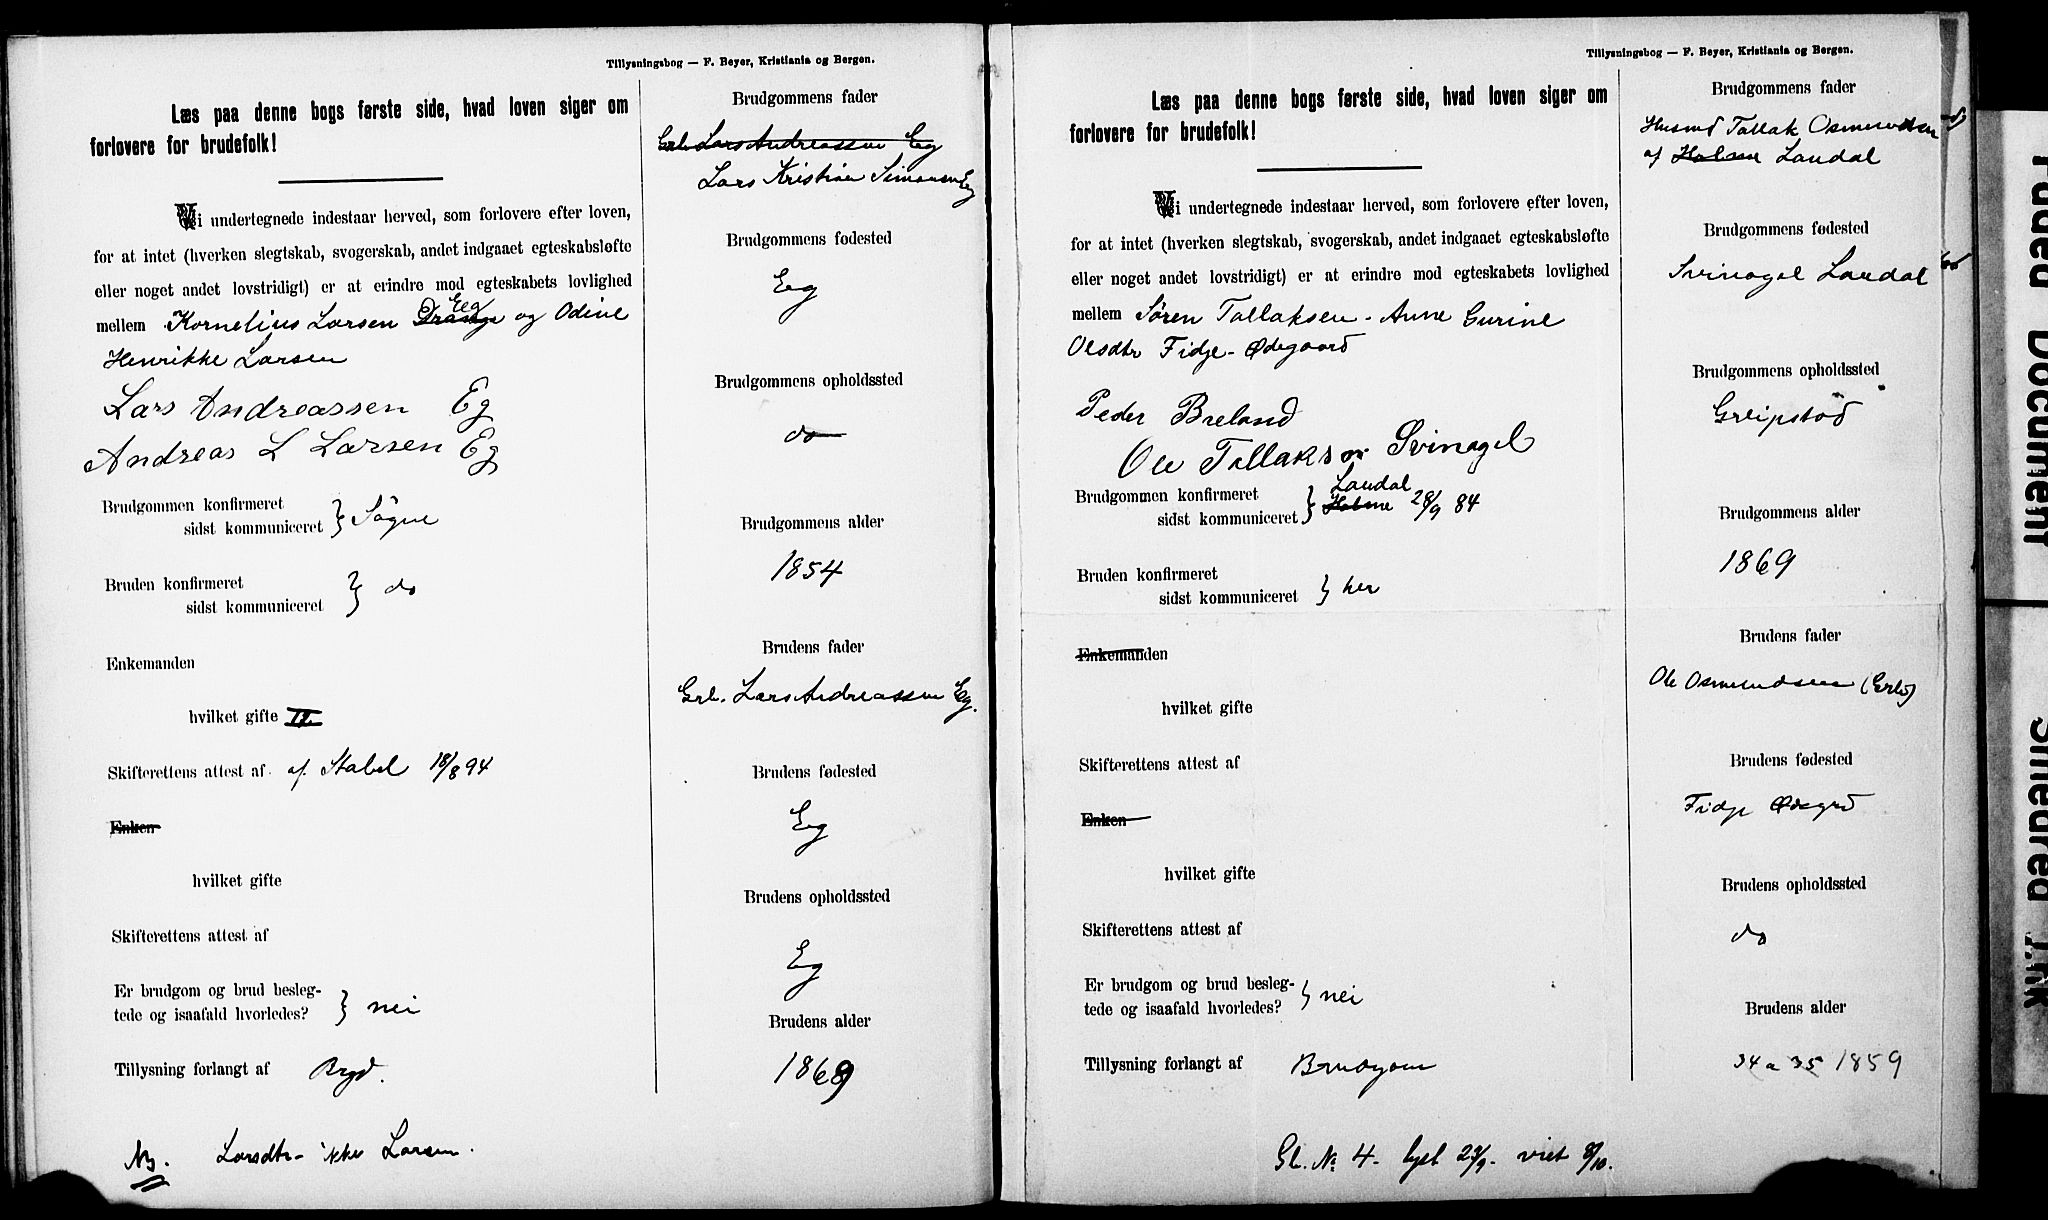 Tillysningsbog — F. Beyer, Kristiania og Bergen.
Læs paa denne bogs første side, hvad loven siger om
forlovere for brudefolk!
Vi undertegnede indestaar herved, som forlovere efter loven,
for at intet (hverken slegtskab, svogerskab, andet indgaaet egteskabsløfte
eller noget andet lovstridigt) er at erindre mod egteskabets lovlighed
mellem Kornelius Larsen Drange Eeg og Odine
Henrikke Larsen
Lars Andreassen Eg
Andreas L Larsen Eg
Brudgommen konfirmeret
sidst kommuniceret } Søgne
Bruden konfirmeret
sidst kommuniceret } do
Enkemanden
hvilket gifte II
Skifterettens attest af af Stabel 18/8 94
Enken
hvilket gifte
Skifterettens attest af
Er brudgom og brud besleg-
tede og isaafald hvorledes? } nei
Tillysning forlangt af Brgd.
NB. Larsdtr ikke Larsen.
Brudgommens fader
Grb. Lars Andreassen Eg
Lars Kristian Simonsen Eg
Brudgommens fødested
Eg
Brudgommens opholdssted
do
Brudgommens alder
1854
Brudens fader
Grb. Lars Andreassen Eg.
Brudens fødested
Eg
Brudens opholdssted
Eg
Brudens alder
1869
Tillysningsbog — F. Beyer, Kristiania og Bergen.
Læs paa denne bogs første side, hvad loven siger om
forlovere for brudefolk!
Vi undertegnede indestaar herved, som forlovere efter loven,
for at intet (hverken slegtskab, svogerskab, andet indgaaet egteskabsløfte
eller noget andet lovstridigt) er at erindre mod egteskabets lovlighed
mellem Søren Tallaksen - Anne Gurine
Olsdtr Fidje - Ødegaard
Peder Breland
Ole Tallaksen Svinagel
Brudgommen konfirmeret
sidst kommuniceret } Holme Laudal 28/9 84
Bruden konfirmeret
sidst kommuniceret } her
Enkemanden
hvilket gifte
Skifterettens attest af
Enken
hvilket gifte
Skifterettens attest af
Er brudgom og brud besleg-
tede og isaafald hvorledes? } nei
Tillysning forlangt af Brudgom
Gl. No 4 - lyst 23/9 - viet 8/10.
Brudgommens fader
Husmd Tallak Osmundsen
af Holme Laudal
Brudgommens fødested
Svinagel Laudal
Brudgommens opholdssted
Greipstød
Brudgommens alder
1869
Brudens fader
Ole Osmundsen (Grbr)
Brudens fødested
Fidje Ødegrd
Brudens opholdssted
do
Brudens alder
34 a 35 1859
Faded Document
Smeared Ink